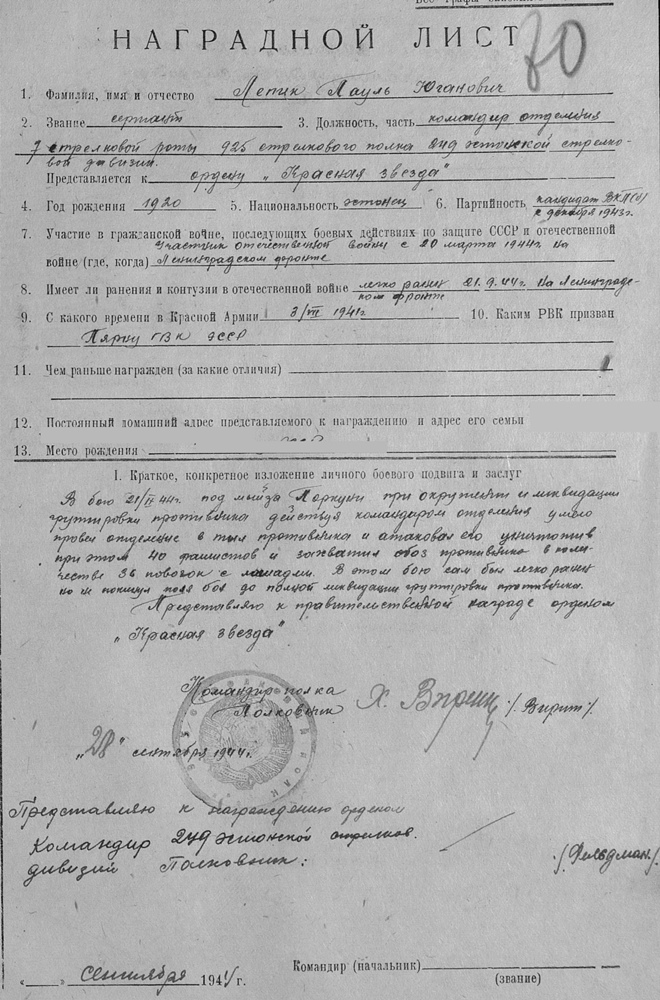 НАГРАДНОЙ ЛИСТ
70
1. Фамилия, имя и отчество Лепик Пауль Юганович
2. Звание сержант 3. Должность, часть командир отделения
7 стрелковой роты 925 стрелкового полка 249 эстонской стрелко-
вой дивизии.
Представляется к ордену „Красная звезда"
4. Год рождения 1920 5. Национальность эстонец 6. Партийность кандидат ВКП(б)
с декабря 1943г.
7. Участие в гражданской войне, последующих боевых действиях по защите СССР и отечественной
Участник отечественной войны с 20 марта 1944г. на
войне (где, когда) Ленинградском фронте
8. Имеет ли ранения и контузии в отечественной войне легко ранен 21.9.44г. на Ленинград-
ском фронте
9. С какого времени в Красной Армии 3/VII 1941г. 10. Каким РВК призван
Пярну ГВК ЭССР
11. Чем раньше награжден (за какие отличия)
12. Постоянный домашний адрес представляемого к награждению и адрес его семьи
13. Место рождения
I. Краткое, конкретное изложение личного боевого подвига и заслуг
В бою 21/IX 44г. под мыйза Поркуни при окружении и ликвидации
группировки противника действуя командиром отделения умело
провел отделение в тыл противника и атаковал его уничтожив
при этом 40 фашистов и захватил обоз противника в коли-
честве 36 повозок с лошадми. В этом бою сам был легко ранен
но не покинул поля боя до полной ликвидации группировки противника.
Представляю к правительственной награде орденом
„Красная звезда"
Командир полка
Полковник /Вырит/.
„28" сентября 1944г.
Представляю к награждению орденом
Командир 249 эстонской стрелков.
дивизии Полковник: /Фельдман/
Командир (начальник)
„ " Сентября 1944 г. (звание)